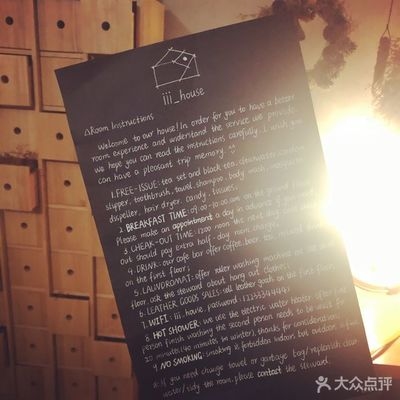 iii_house
△Room Instructions
Welcome to our house! In order for you to have a better
room experience and understand the service we provide.
We hope you can read the instructions carefully. I wish you
can have a pleasant trip memory.
1. FREE-ISSUE: tea set and black tea,
slipper, toothbrush, towel, shampoo, body wash, mosquito
dispeller, hair dryer, candy, tissues;
2. BREAKFAST TIME: 09:00-10:00 am on the ground floor
Please make an appointment a day in advance if you
3. CHEAK-OUT TIME: 12:00 noon the next day,
out should pay extra half-day room charge;
4. DRINK: our cafe bar offer coffee, beer, tea,
on the first floor;
5. LAUNDROMAT: offer roller washing machine
floor ask the steward about hang out clothes;
6. LEATHER GOODS SALES: sell leather goods on the first floor;
7. WIFI: iii_house, password:
8. HOT SHOWER: we use the electric water heater, after first
person finish washing the second person needs to be wait for
20 minutes (40 minutes in winter), thanks for consideration;
9. NO SMOKING: Smoking is forbidden indoor, but outdoor is
If you need change towel or garbage bag/replenish clean
water/tidy the room, please contact the steward.
大众点评